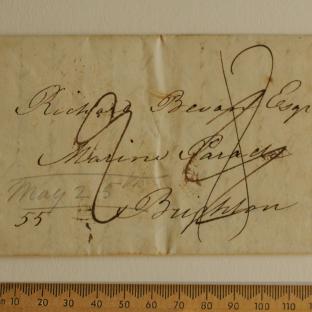 Richard Bevan Esqr
Marine Parade
May 25th
55 Brighton
10 20 30 40 50 60 70 80 90 100 110 120 130